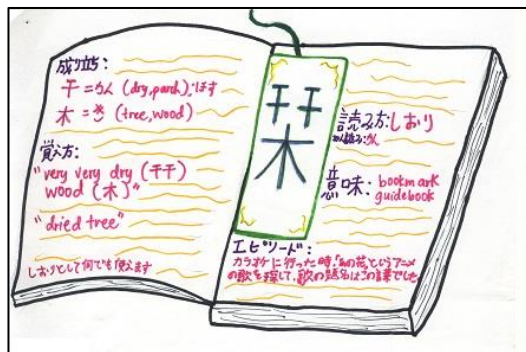 成り立ち:
干 = かん (dry, parch); ほす
木 = き (tree, wood)
覚え方:
"very very dry (干干)
wood (木)"
"dried tree"
しおりとして何でも使えます
栞
読み方: しおり
音読み: かん
意味: bookmark
guidebook
エピソード:
カラオケに行った時、「あの花」というアニメ
の歌を探して、歌の題名はこの漢字でした